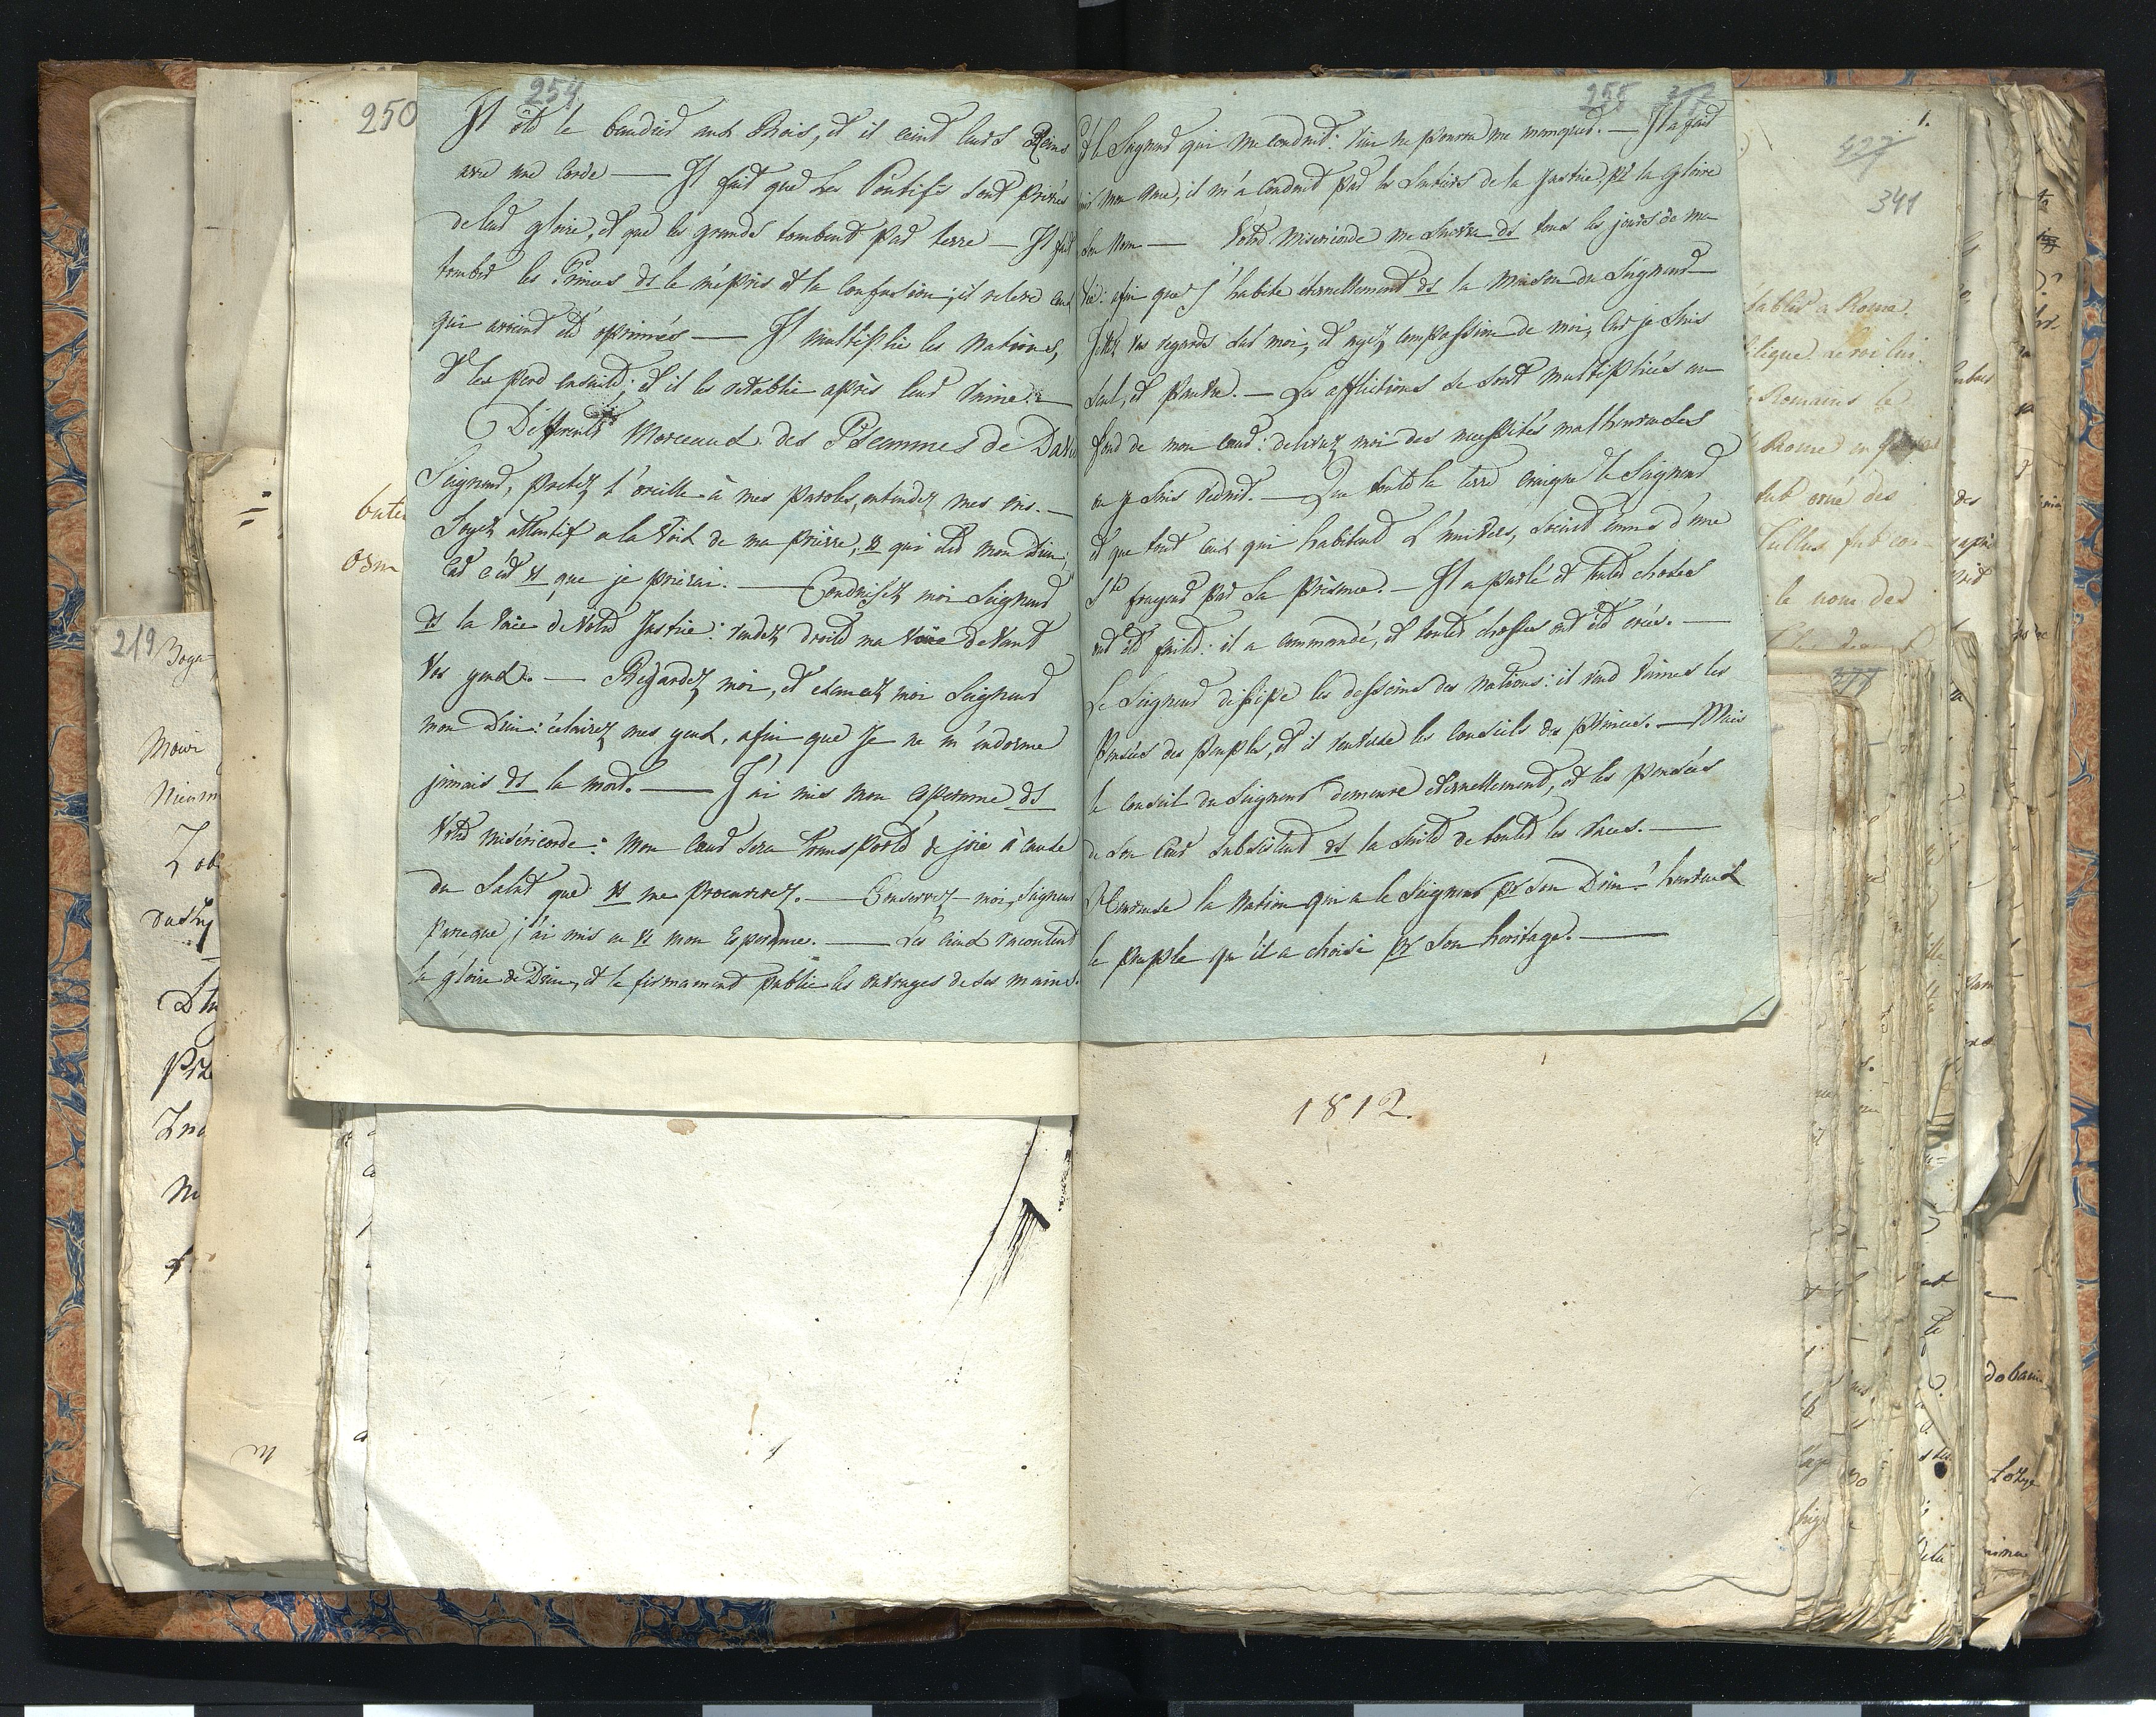 254
Il ôte le baudrier aux Rois, et il ceint leurs Reins
avec une Corde — Il fait que Les Pontifs sont privés
de leur gloire, et que les grands tombent par terre — Il fait
tomber les Princes ds le mépris et la Confusion; il releve ceux
qui avoient été oprimés — Il multiplie les Nations,
et les perd ensuite; et il les retablie après leur ruine. —
Differents Morceaux des Pseaumes de David
Seigneur, pretez l'oreille à mes paroles, entendez mes cris. —
Soyez attentif a la Voix de ma prière, vs qui êtes mon Dieu;
Car c'est vs que je prierai. — Conduisez moi Seigneur
ds la Voie de Votre Justice: rendez droite ma Voie devant
Vos yeux. — Regardez moi, et exaucez moi Seigneur
mon Dieu: éclairez mes yeux, afin que Je ne m'endorme
jamais ds la mort. — J'ai mis mon esperance ds
Votre miséricorde: Mon cœur sera transporté de joie à cause
du Salut que vs me procurerez. — Conservez-moi, Seigneur
parceque j'ai mis en vs mon Esperance. — Les cieux racontent
la gloire de Dieu, et le firmament publie les ouvrages de ses mains.
255
C'est le Seigneur qui me conduit: rien ne pourra me manquer. — Il a fait
mon ame, il m'a Conduit par les Sentiers de la Justice, pr la Gloire
Son Nom — Votre Misericorde me suivra ds tous les jours de ma
Vie: afin que j'habite éternellement ds la Maison du Seigneur —
Jettez vos regards sur moi, et ayez compassion de moi, Car je suis
Seul, et pauvre. — Les afflictions se sont multipliées au
fond de mon cœur: delivrez moi des necessités malheureuses
ou je suis reduit. — Que toute la terre craigne le Seigneur
et que tout ceux qui habitent L'univers, soient émus d'une
Ste frayeur par Sa présence. — Il a parlé et toutes choses
ont été faites: il a commandé, et toutes chosses ont été crées. —
Le Seigneur dissipe les desseins des Nations: il rend Vaines les
Pensées des peuples, et il renverse les Conseils des Princes. — Mais
le Conseil du Seigneur demeure eternellement, et les pensées
de Son Cœur Subsistent ds la Suite de toutes les races. —
Heureuse la Nation qui a le Seigneur pr Son Dieu! heureux
le peuple qu'il a choisi pr Son heritage. —
1812.
250
219
427
341
1.
377
tablit a Rome
Romains le
Rome en
fut orné des
le nom des